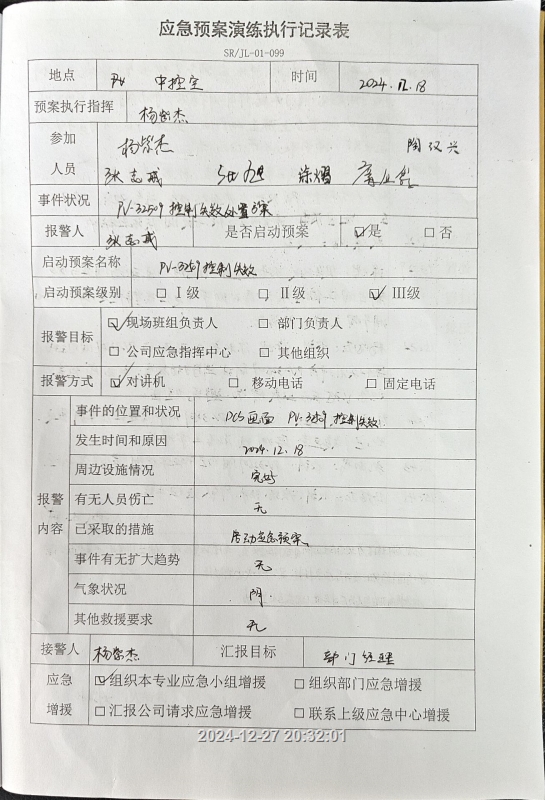 应急预案演练执行记录表
SR/JL-01-099
地点 中控室 时间 2024.12.18
预案执行指挥 杨紫杰
参加人员 杨紫杰 陶汉兴
张志成 涂熠
事件情况 PV-32509控制失效处置方案
报警人 张志成 是否启动预案 ☑是 □否
启动预案名称 PV-3259控制失效
启动预案级别 □Ⅰ级 □Ⅱ级 ☑Ⅲ级
报警目标 ☑现场班组负责人 □部门负责人
□公司应急指挥中心 □其他组织
报警方式 ☑对讲机 □移动电话 □固定电话
报警内容 事件的位置和状况 DCS画面 控制失效
发生时间和原因 2024.12.18
周边设施情况 完好
有无人员伤亡 无
已采取的措施 启动应急预案
事件有无扩大趋势 无
气象状况 阴
其他救援要求 无
接警人 杨紫杰 汇报目标 部门经理
应急增援 ☑组织本专业应急小组增援 □组织部门应急增援
□汇报公司请求应急增援 □联系上级应急中心增援
2024-12-27 20:32:01